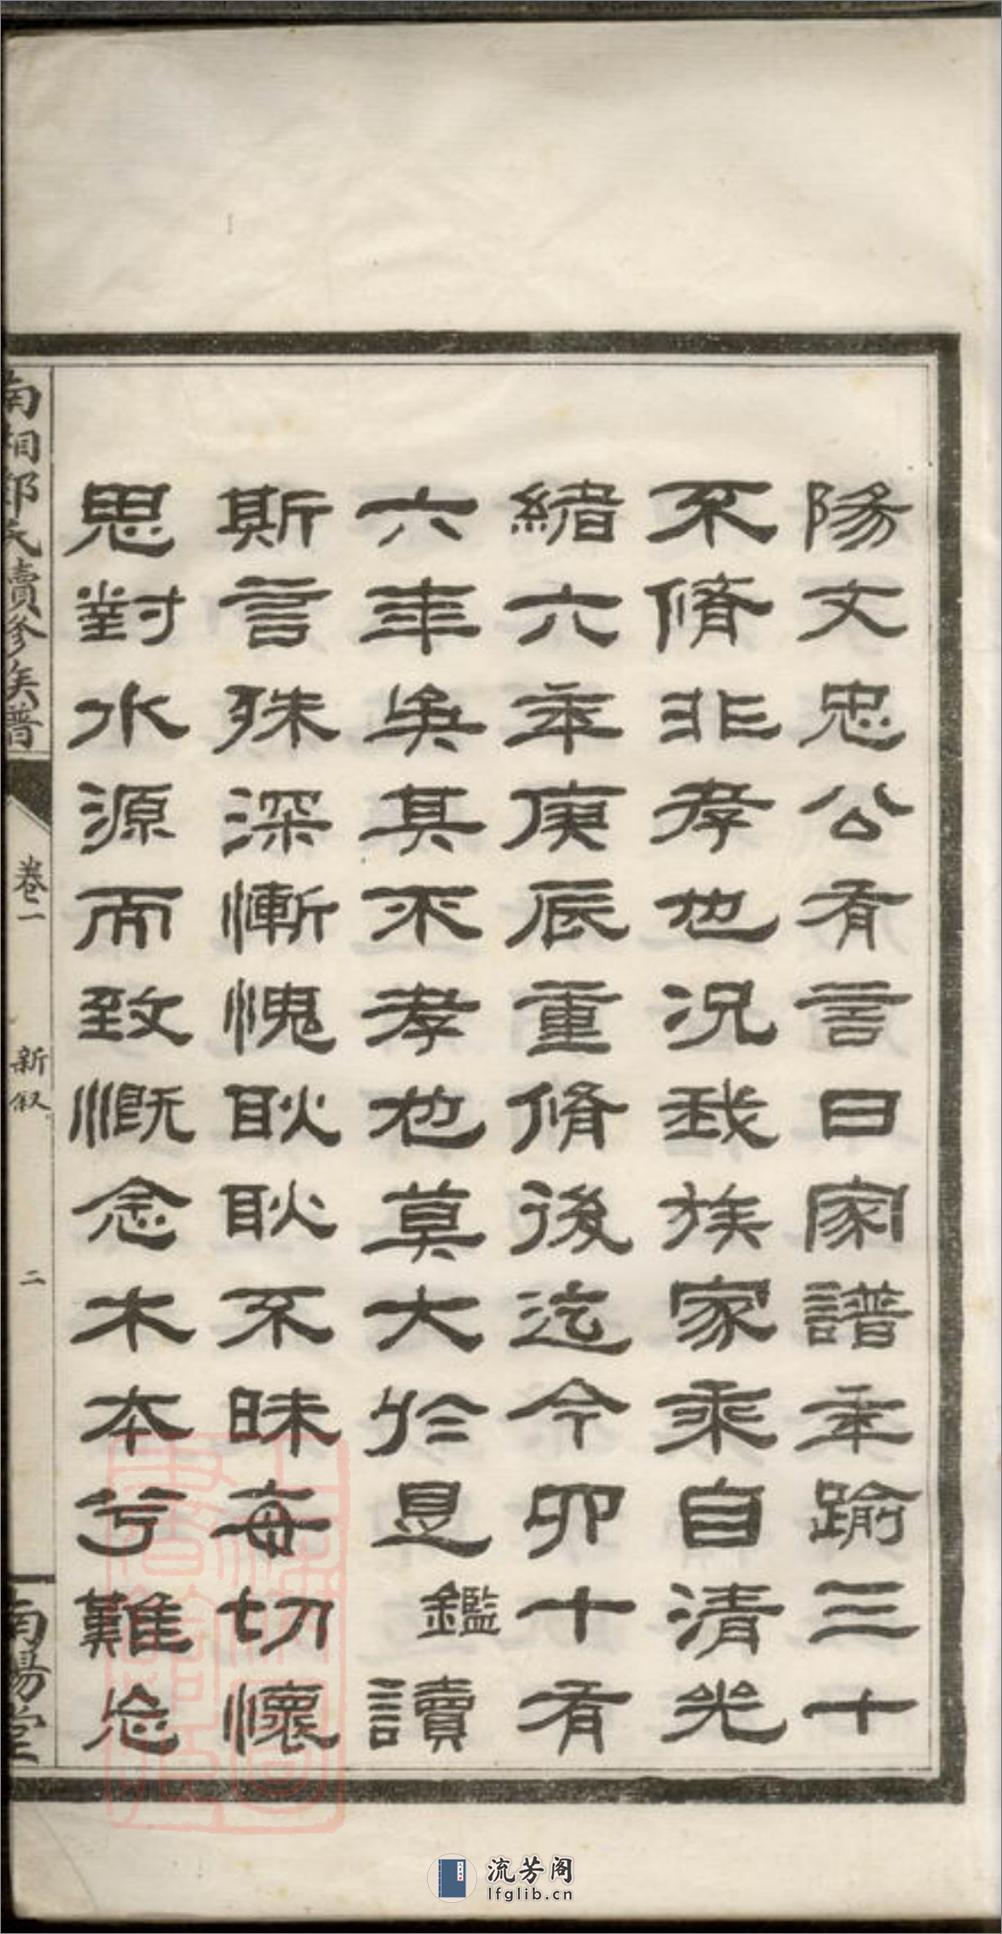 陽文忠公有言曰家譜年踰三十
不脩非孝也況我族家乘自清光
緒六年庚辰重脩後迄今卯十有
六年矣其不孝也莫大於是鑑讀
斯言殊深慚愧耿耿不昧每切懷
思對水源而致慨念木本兮難忘
南湘鄧氏續修族譜
卷二
新叙
二
南陽堂
流芳阁
lfglib.cn